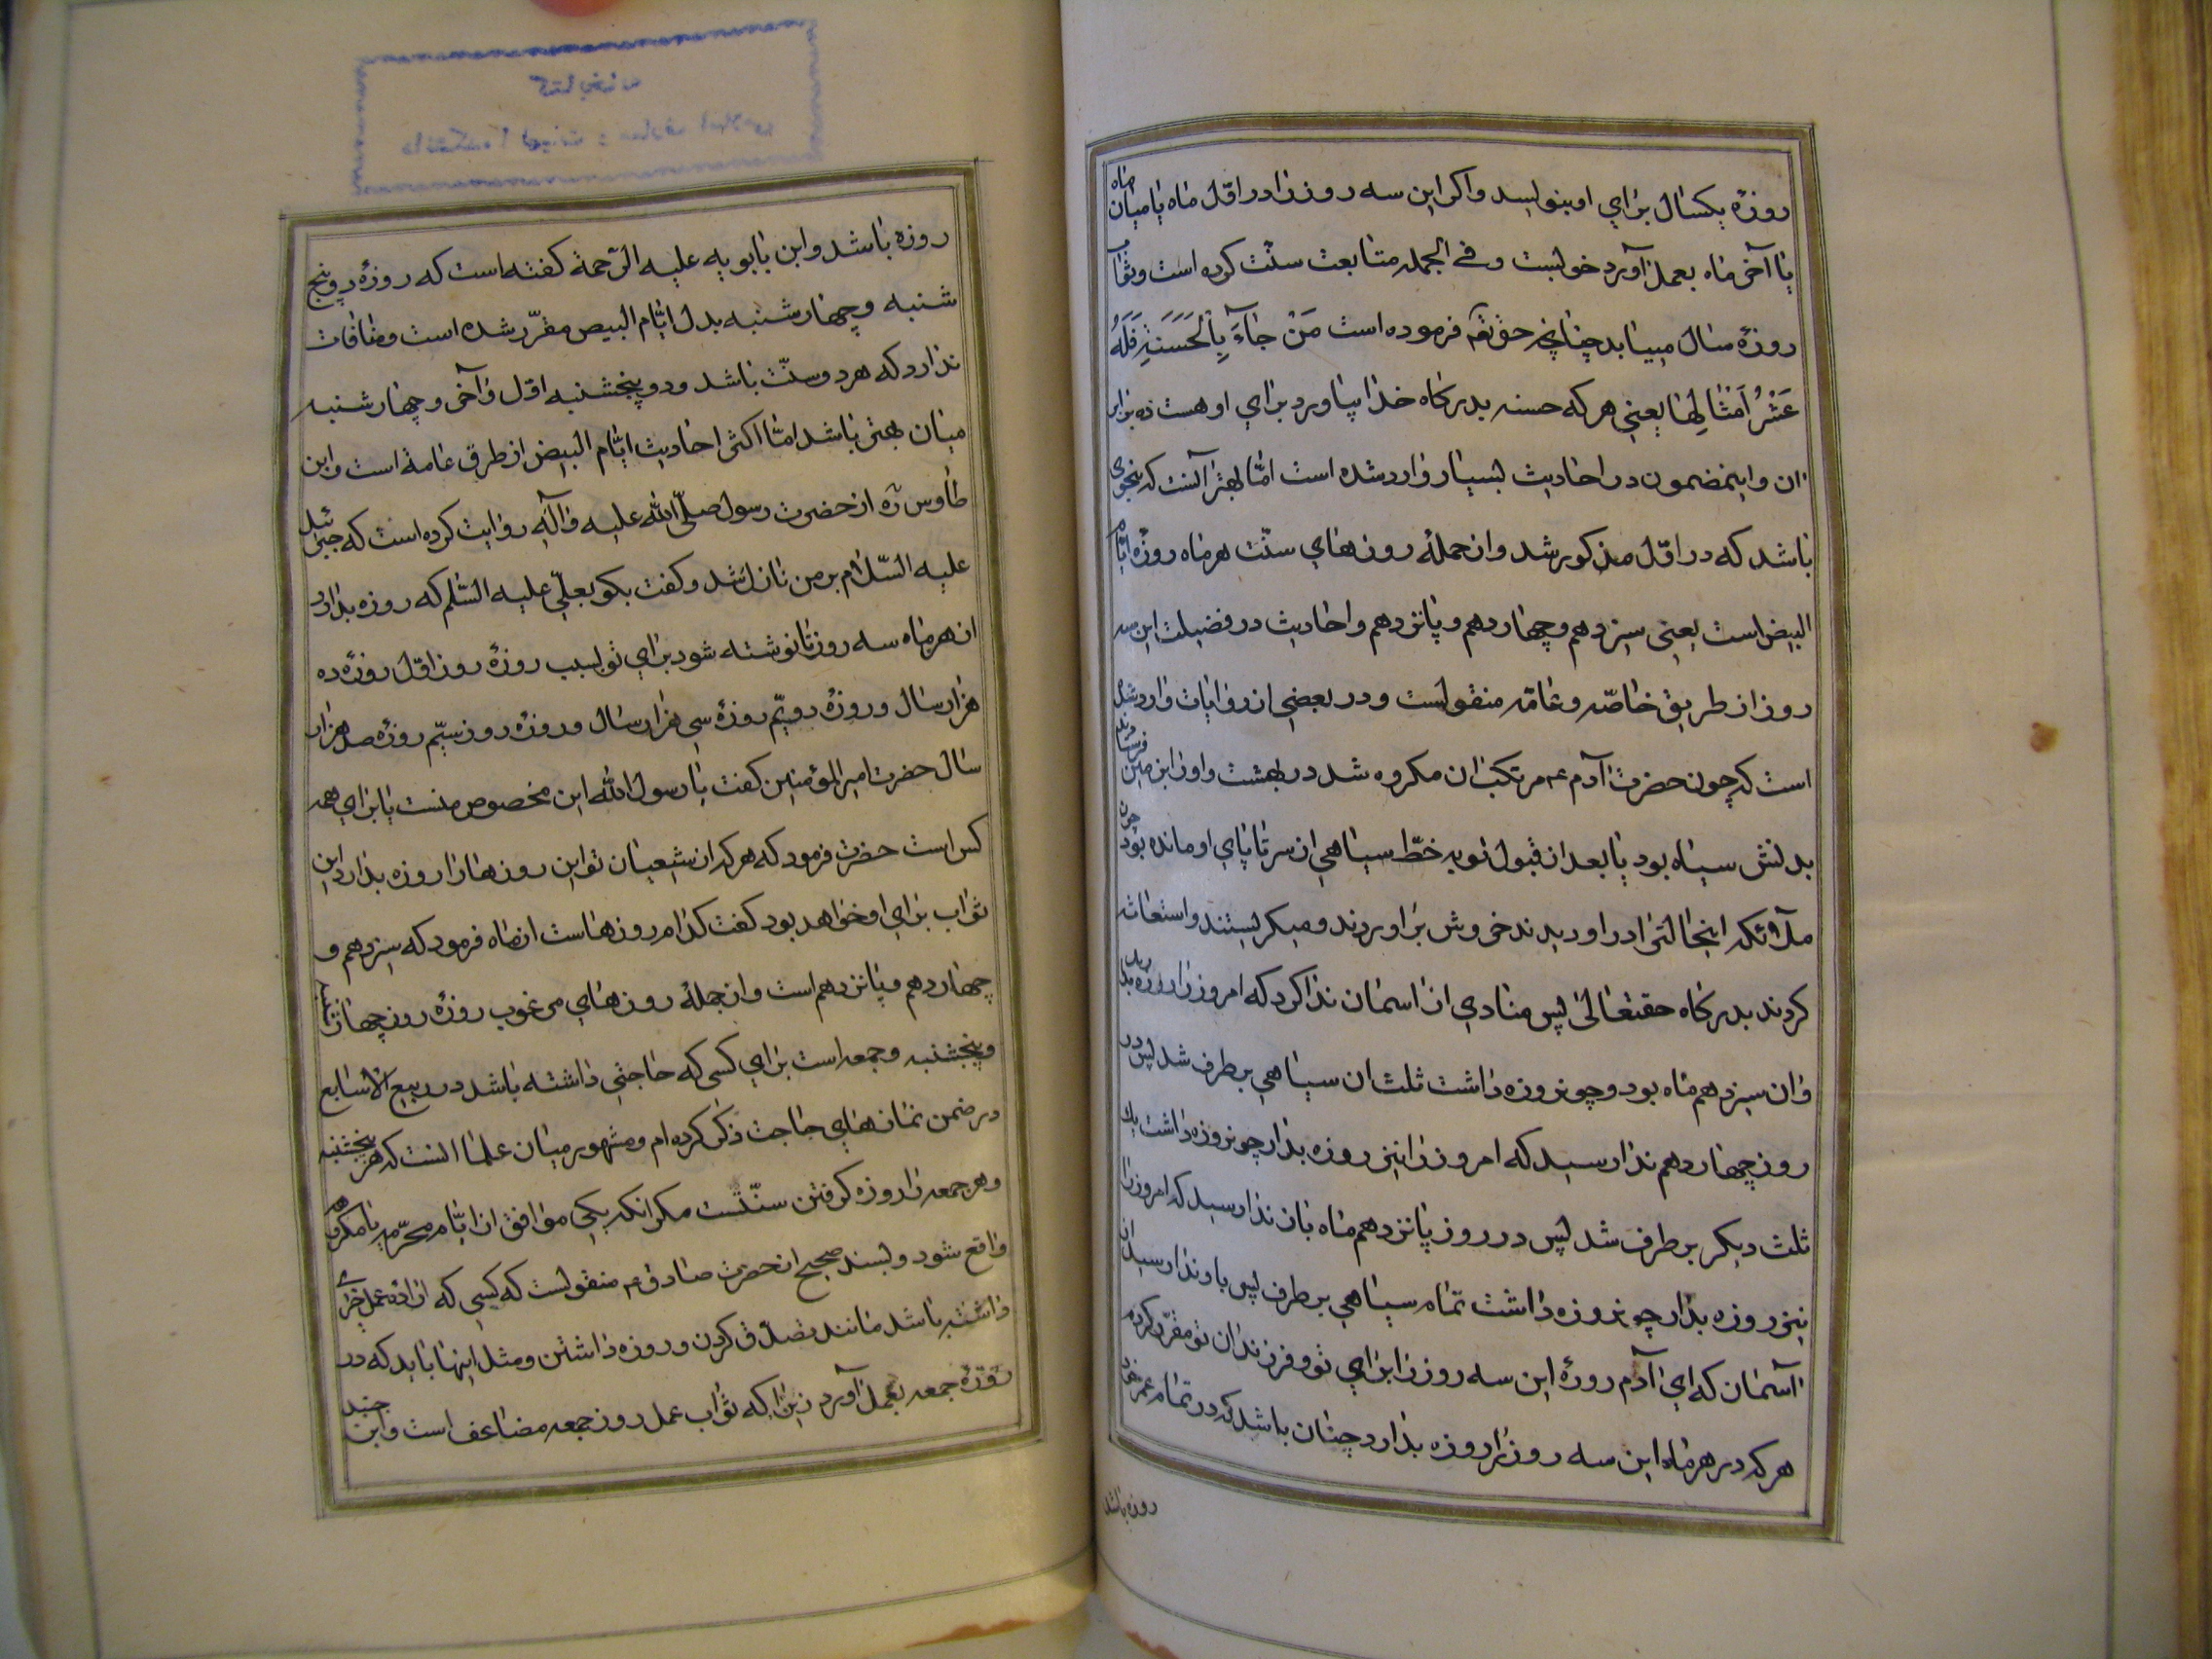 روزهٔ یکسال برای او بنویسد و اکر این سه روز را در اوّل ماه یا میان ماه
یا آخر ماه بعمل آورد خوبست و فی الجمله متابعت سنّت کرده است و ثواب
روزهٔ سال مییابد چنانچه حقتعم فرموده است مَنْ جَاءَ بِالْحَسَنَةِ فَلَهُ
عَشْرُ اَمْثَالِهَا یعنی هر که حسنه بدرکاه خدا بیاورد برای او هست ده برابر
ان و اینمضمون در احادیث بسیار وارد شده است امّا بهتر آنست که بنحوی
باشد که در اوّل مذکور شد و از جملهٔ روزهای سنّت هر ماه روزهٔ ایّام
البیض است یعنی سیزدهم و چهاردهم و پانزدهم و احادیث در فضیلت این سه
روز از طریق خاصّه و عامّه منقولست و در بعضی از روایات وارد شده
است که چون حضرت آدم ع مرتکب ان مکروه شد در بهشت و او را بزمین فرستادند
بدنش سیاه بود یا بعد از قبول توبه خطّ سیاهی از سر تا پای او مانده بود چون
ملائکه اینحالترا در او دیدند خروش براوردند و میکریستند و استغاثه
کردند بدرکاه حقتعالی پس منادی از اسمان ندا کرد که امروز را روزه بدار
وان سیزدهم ماه بود و چون روزه داشت ثلث ان سیاهی برطرف شد پس در
روز چهاردهم ندا رسید که امروز را نیز روزه بدار چون روزه داشت یک
ثلث دیکر برطرف شد پس در روز پانزدهم ماه باز ندا رسید که امروز را
نیز روزه بدار چون روزه داشت تمام سیاهی برطرف پس باو ندا رسید از
آسمان که ای آدم روزهٔ این سه روز را برای تو و فرزندان تو مقرّر کردم
هر که در هر ماه این سه روز را روزه بدارد چنان باشد که در تمام عمر خود
روزه باشد
روزه باشد و ابن بابویه علیه الرّحمة کفته است که روزهٔ دو پنج
شنبه و چهارشنبه بدل ایّام البیض مقرّر شده است و منافات
ندارد که هر دو سنّت باشد و دو پنجشنبه اوّل و آخر و چهارشنبه
میان بهتر باشد امّا اکثر احادیث ایّام البیض از طرق عامة است و ابن
طاوس ره از حضرت رسول صلّی الله علیه و آله روایت کرده است که جبرئیل
علیه السّلام بر من نازل شد و کفت بکو بعلّی علیه السّلم که روزه بدارد
از هر ماه سه روز تا نوشته شود برای تو بسبب روزهٔ روز اوّل روزهٔ ده
هزار سال و روزهٔ دویّم روزهٔ سی هزار سال و روزهٔ روز سیّم روزهٔ صد هزار
سال حضرت امیر المؤمنین کفت یا رسول الله این مخصوص منست یا برای همه
کس است حضرت فرمود که هر که از شیعیان تو این روزها را روزه بدارد این
ثواب برای او خواهد بود کفت کدام روزهاست از ماه فرمود که سیزدهم و
چهاردهم و پانزدهم است و از جملهٔ روزهای مرغوب روزهٔ روز چهارشنبه
و پنجشنبه و جمعه است برای کسی که حاجتی داشته باشد در ربیع الاسابع
در ضمن نمازهای حاجت ذکر کرده ام و مشهور میان علما انست که هر پنجشنبه
و هر جمعه را روزه کرفتن سنّتست مکر انکه یکی موافق از ایّام محرّمه یا مکروهه
واقع شود و بسند صحیح از حضرت صادق ع منقولست که کسی که ارادهٔ عمل خیری
داشته باشد مانند تصدّق کردن و روزه داشتن و مثل اینها باید که در
روزهٔ جمعه بعمل آورد زیرا که ثواب عمل روز جمعه مضاعف است و ابن جنید